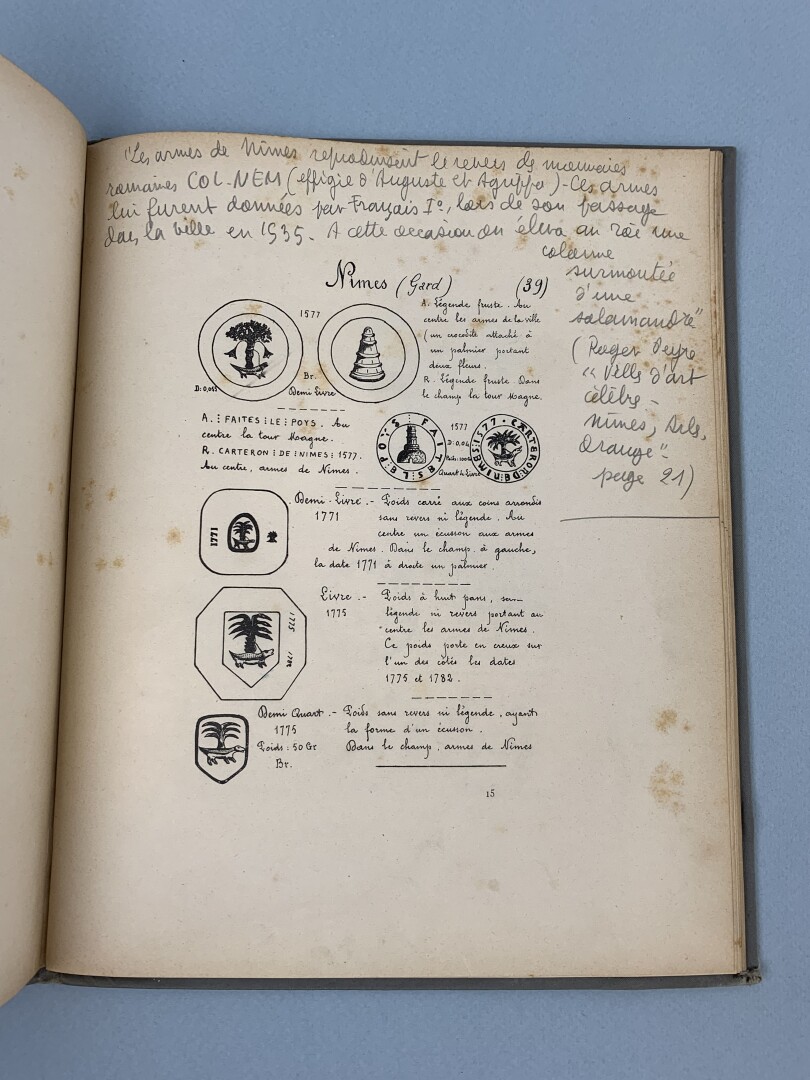 "Les armes de Nîmes reproduisent le revers de monnaies
romaines COL-NEM (effigie d'Auguste et Agrippa)-Ces armes
lui furent données par Français Iº, lors de son passage
dans la ville en 1535. A cette occasion on éleva au roi une
colonne
surmontée
d'une
salamandre"
(Roger Peyre
"Villes d'art
célèbre -
Nîmes, Arles,
Orange"-
page 21)
Nîmes (Gard) (39)
1577
Br.
D: 0,055
Demi Livre
A. Légende fruste. Au
centre les armes de la ville
(un crocodile attaché à
un palmier portant
deux fleurs.
R. Légende fruste. Dans
le champ la tour Magne.
A. ⋮ FAITES ⋮ LE ⋮ POYS. Au
centre la tour Magne.
R. CARTERON ⋮ DE ⋮ NIMES ⋮ 1577.
Au centre, armes de Nîmes.
FAITES LE POYS
1577
D: 0,04
Quart de Livre
CARTERON DE NIMES 1577
1771
Demi-Livre.- Poids carré aux coins arrondis
1771 sans revers ni légende. Au
centre un écusson aux armes
de Nîmes. Dans le champ à gauche,
la date 1771 à droite un palmier.
1775
1782
Livre.- Poids à huit pans, sans
1775 légende ni revers portant au
centre les armes de Nîmes.
Ce poids porte en creux sur
l'un des côtés les dates
1775 et 1782.
Demi Quart.- Poids sans revers ni légende, ayant
1775 la forme d'un écusson.
Poids: 50 Gr Dans le champ, armes de Nîmes
Br.
15